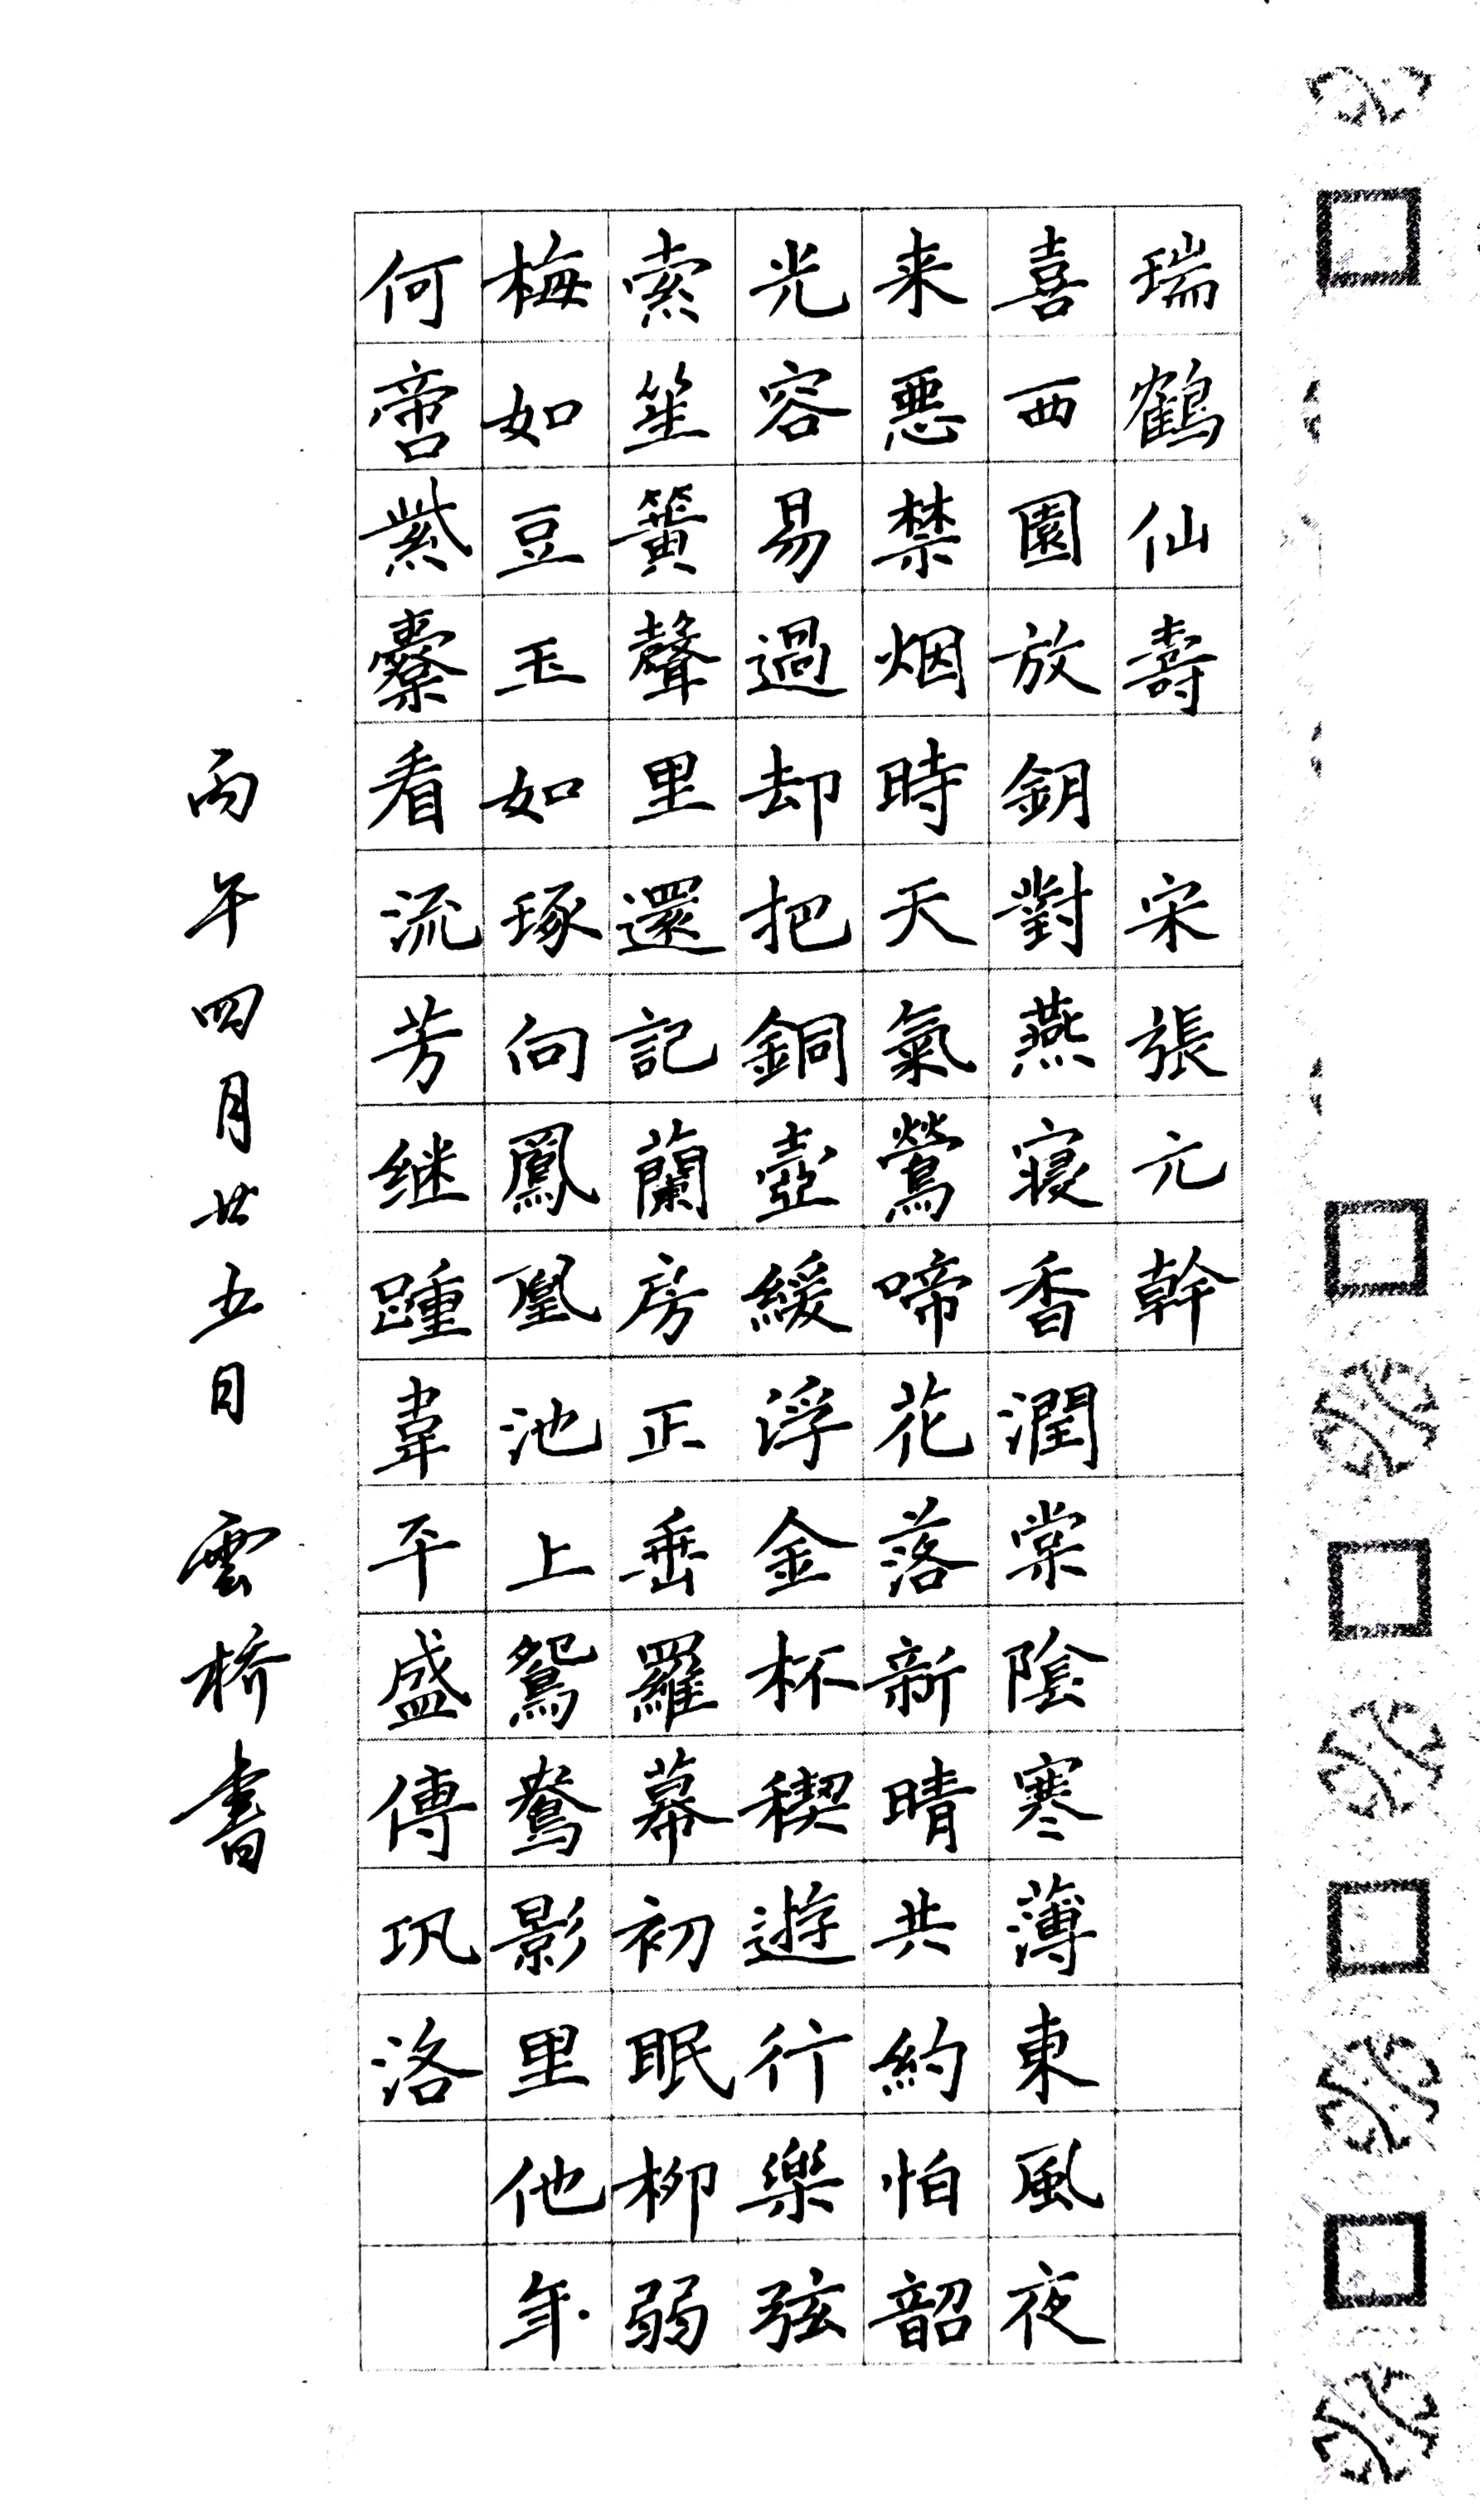 瑞鶴仙壽 宋張元幹
喜西園放鈅對燕寝香潤棠陰寒薄東風夜
来悪禁烟時天氣鶯啼花落新晴共約怕韶
光容易過却把銅壺緩浮金杯稧遊行樂弦
索笙簧聲里還記蘭房正垂羅幕初眠柳弱
梅如豆玉如琢向鳳凰池上鴛鴦影里他年
何啻紫橐看流芳继踵韋平盛傳巩洛
丙午四月廿五日 雲桥書